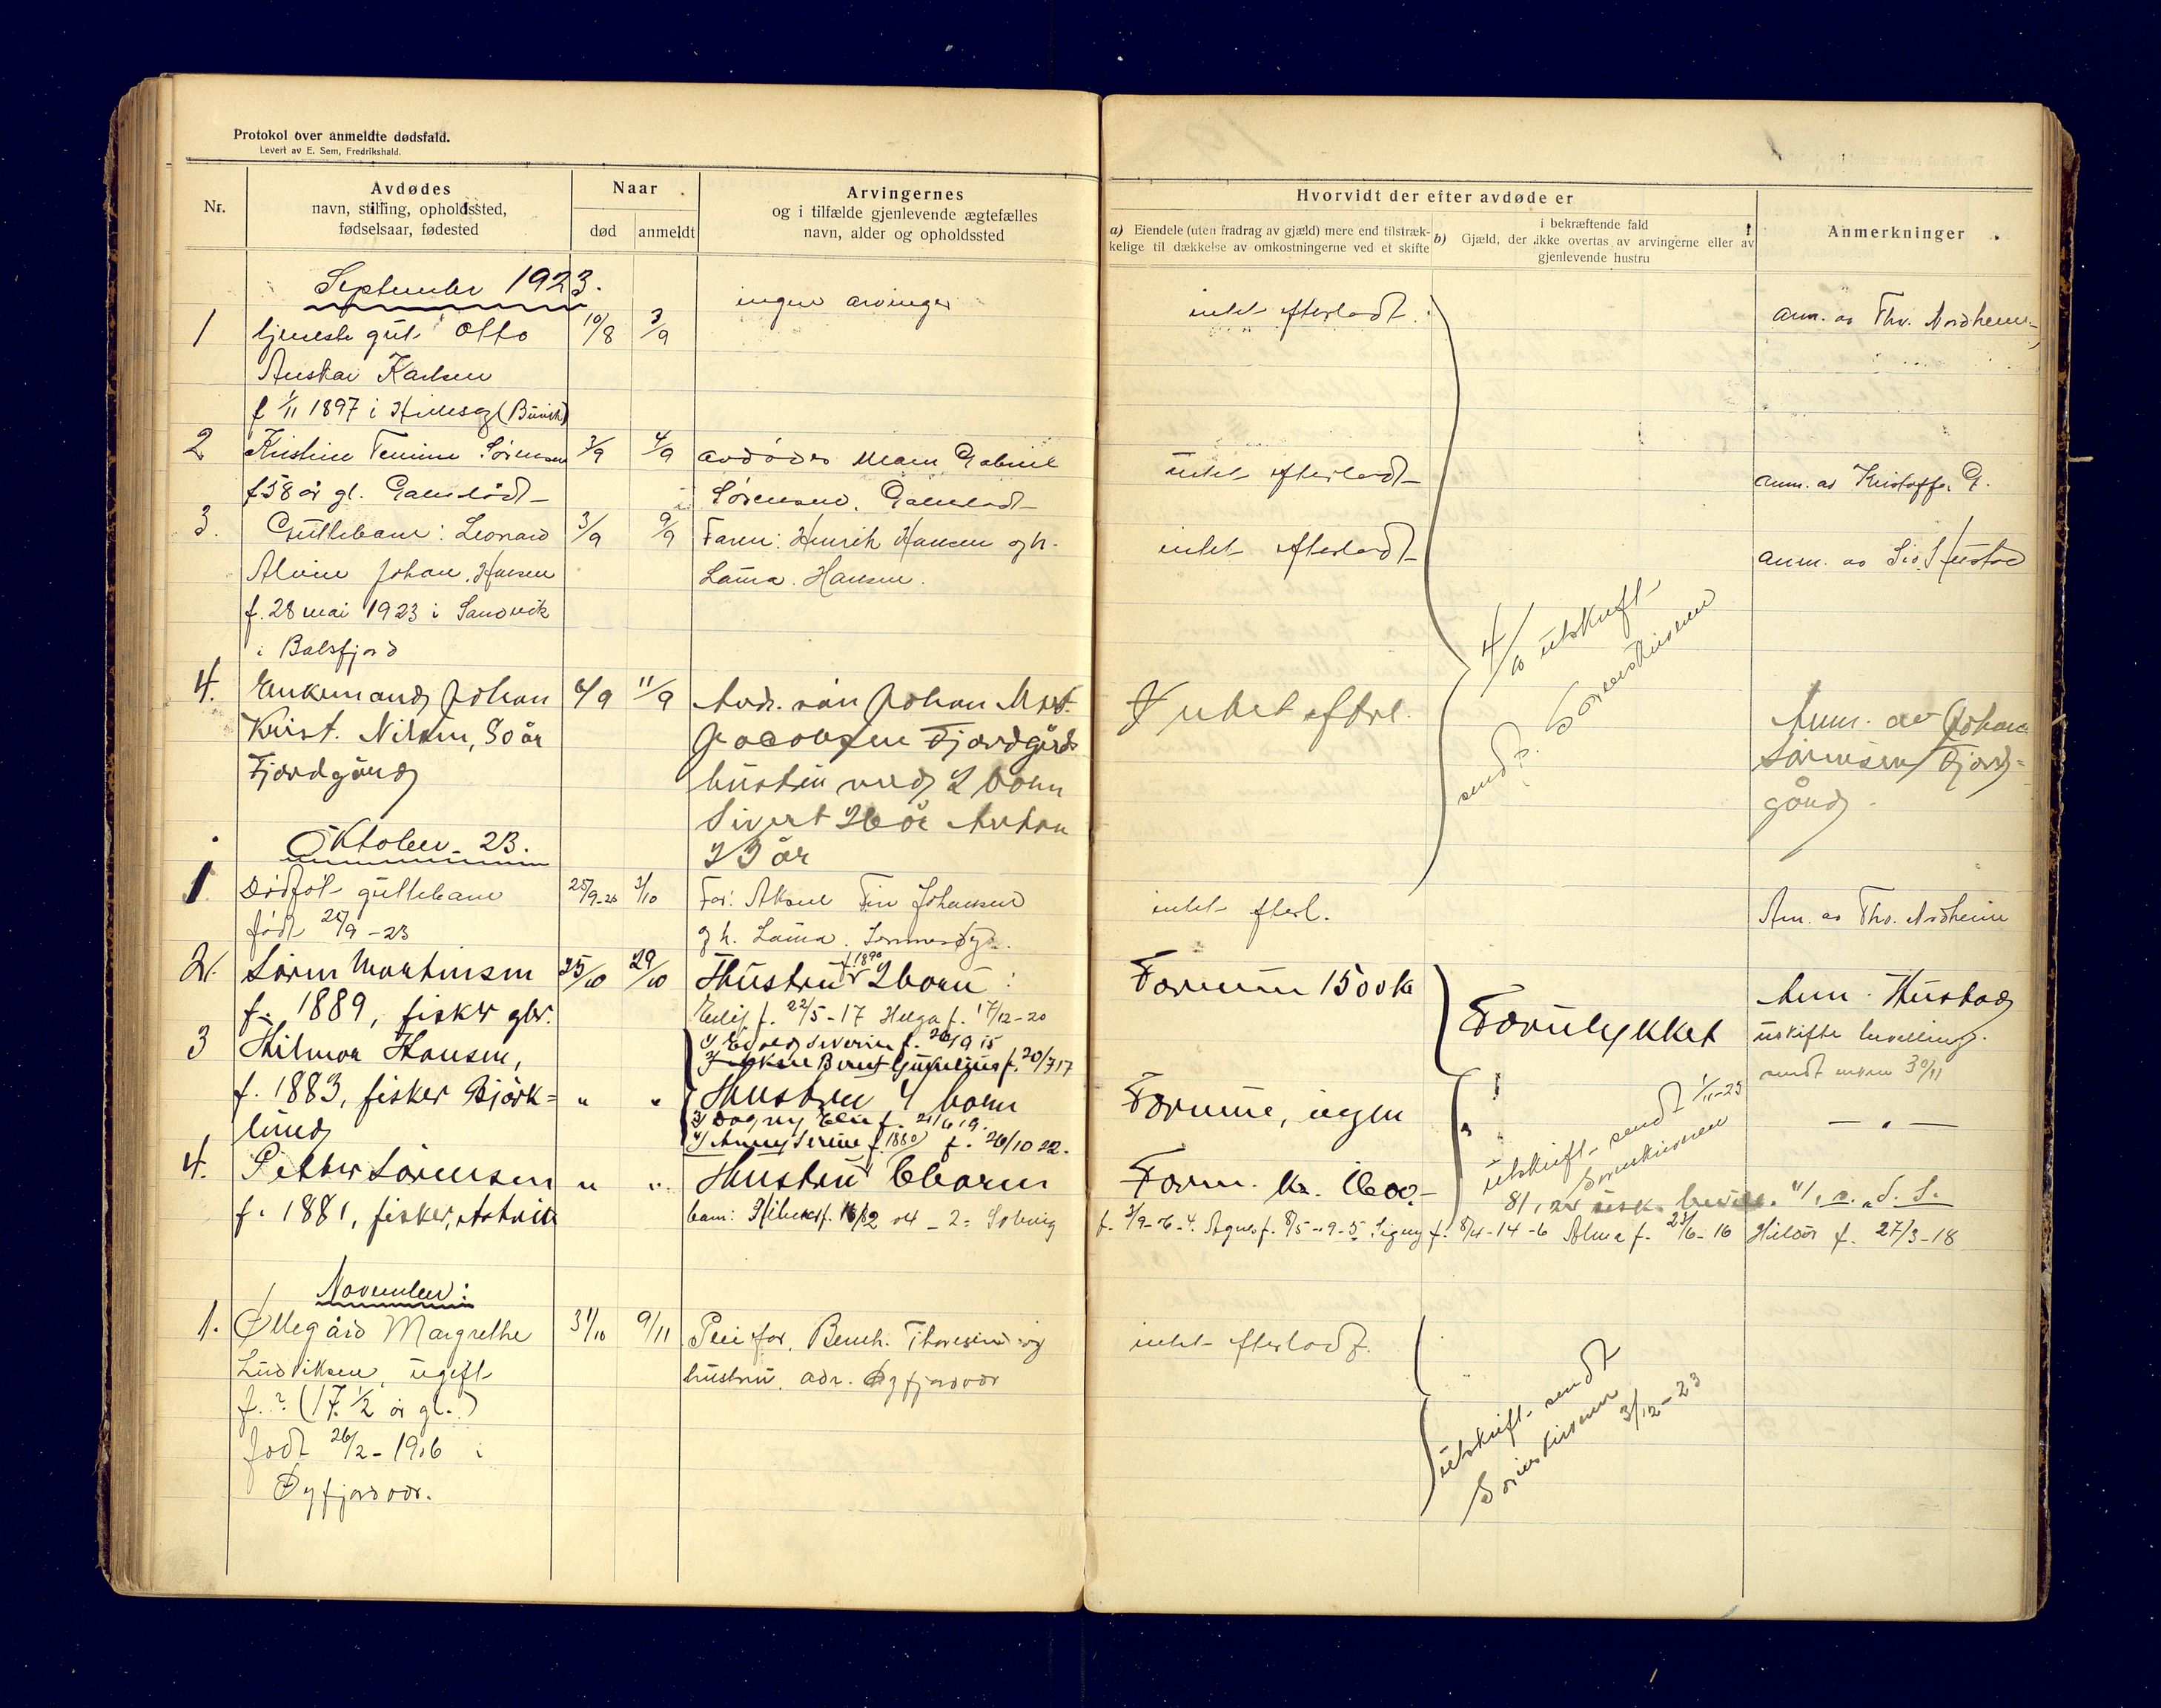 Protokol over anmeldte dødsfald.
Levert av E. Sem, Fredrikshald.
Nr.
Avdødes
navn, stilling, opholdssted,
fødselsaar, fødested
Naar
død
anmeldt
Arvingernes
og i tilfælde gjenlevende ægtefælles
navn, alder og opholdssted
Hvorvidt der efter avdøde er
a) Eiendele (uten fradrag av gjæld) mere end tilstræk-
kelige til dækkelse av omkostningerne ved et skifte
b) i bekræftende fald
Gjæld, der ikke overtas av arvingerne eller av
gjenlevende hustru
Anmerkninger
September 1923.
1
tjeneste gut Otto
Anskar Karlsen
f 1/11 1897 i Hillesøy
10/8
3/9
ingen arvinger
intet efterladt.
anm. av Thv. Nordheim
2
Kristine Sørensen
f 58 år gl.
3/9
4/9
avdødes mann Gabriel
Sørensen.
intet efterladt
anm. av Kristoffer G.
3.
Guttebarn: Leonard
Johan. Hansen
f. 28 mai 1923 i Sandvik
i Balsfjord
3/9
9/9
Faren: Henrik Hansen og h.
Laura. Hansen.
intet efterladt
anm. av Hustad
4/10 utskrift
sendt Sorenskriveren
4.
Enkemand Johan
Krist. Nilsen, 80 år
Fjordgård
6/9
11/9
Avd. søn Johan Mart.
Jacobsen Fjordgård
hustru med 2 born
Sivert 26 år Anton
23 år
Intet efterl.
Anm. av Johan
Sørensen Fjord=
gård
Oktober 23.
1
Dødføt guttebarn
født 25/9 - 23
25/9-23
3/10
Far: Aksel Fin Johansen
og h. Laura.
intet efterl.
An. av Thv. Nordheim
2.
Søren Martinsen
f. 1889, fisker gbr.
25/10
29/10
Hustru f 1890 2 born:
f. 22/5-17 Helga f. 17/12-20
Formue 1500 kr
Forulykket
Anm. Hustad
uskifte bevilling.
3
Hilmar Hansen,
f. 1883, fisker Björk=
lund
" "
1) Edvard Severin f. 26/9 15
2) Aksel Bernt f. 20/7 17
Hustru 4 born
3) Dagny Elen f. 21/6 19.
4) Anny Serine (f. 1880) f. 26/10 22.
Formue, ingen
utskrift sendt 1/11-23
Sorenskriveren
— " —
4.
Petter Sørensen
f. 1881, fisker,
" "
Hustru 6 born
barn: f. 16/2 04 - 2: Solveig
f. 3/9-06 - 4. Agnes f. 8/5-09 - 5 Signy f. 8/4-14 - 6 Alma f. 23/6-16 Halvor f. 27/3-18
Form. kr. 1600.-
November:
1.
Øllegård Margrethe
Ludviksen, ugift
f. ? (17 1/2 år gl.)
født 26/2 - 1906 i
Øyfjordvær.
31/10
9/11
Pleiefar. Bernh. Thoresen og
hustru, adr. Øyfjordvær
intet efterladt.
utskrift sendt
Sorenskriveren 3/12-23